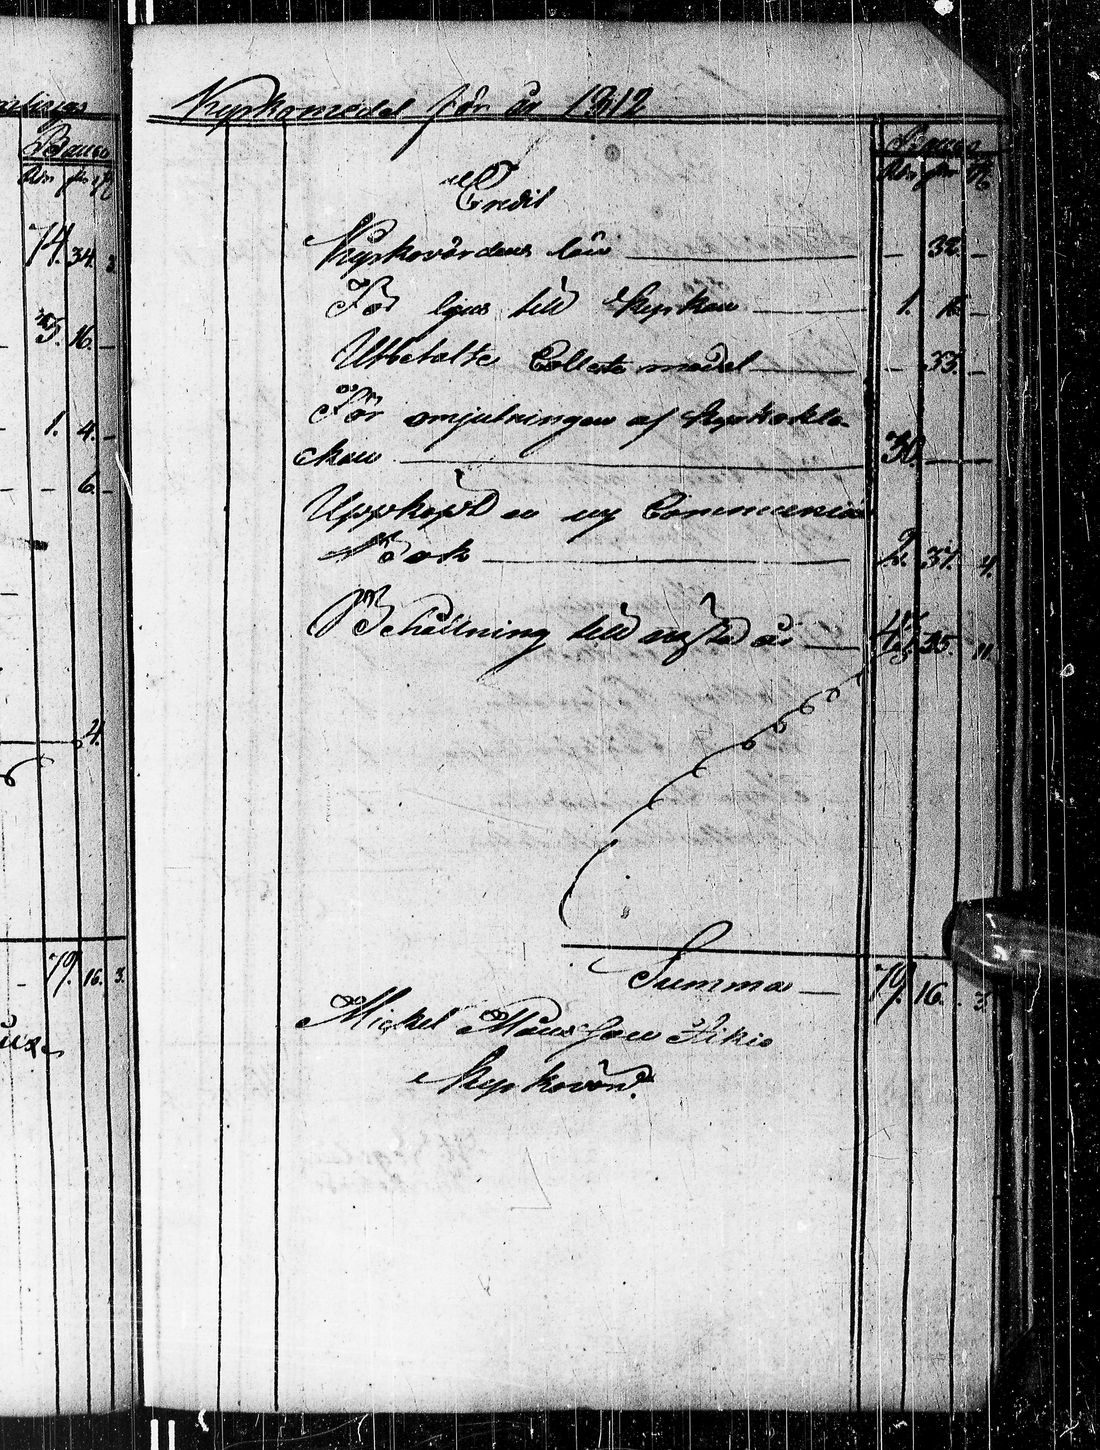 Kyrkomedel för år 1812
Banco
Rdr sk rst
Credit
Kyrkovärdens lön — - 32. -
För ljus till Kyrkan — 1. 16 -
Utbetalte Collecte medel — - 33. -
För omjutningen af Kyrkoklo-
ckan — 30. — —
Uppköpt en ny Communion
Bok — 2. 37. 4.
Behållning till nästa år — 35. 11.
Summa — 79. 16. 3.
Mickel Månsson Sikio
Kyrkovärd.
Banco
Rdr sk rst
74. 34. 3.
3. 16. -
1. 4. -
- 6. -
4.
79. 16. 3.